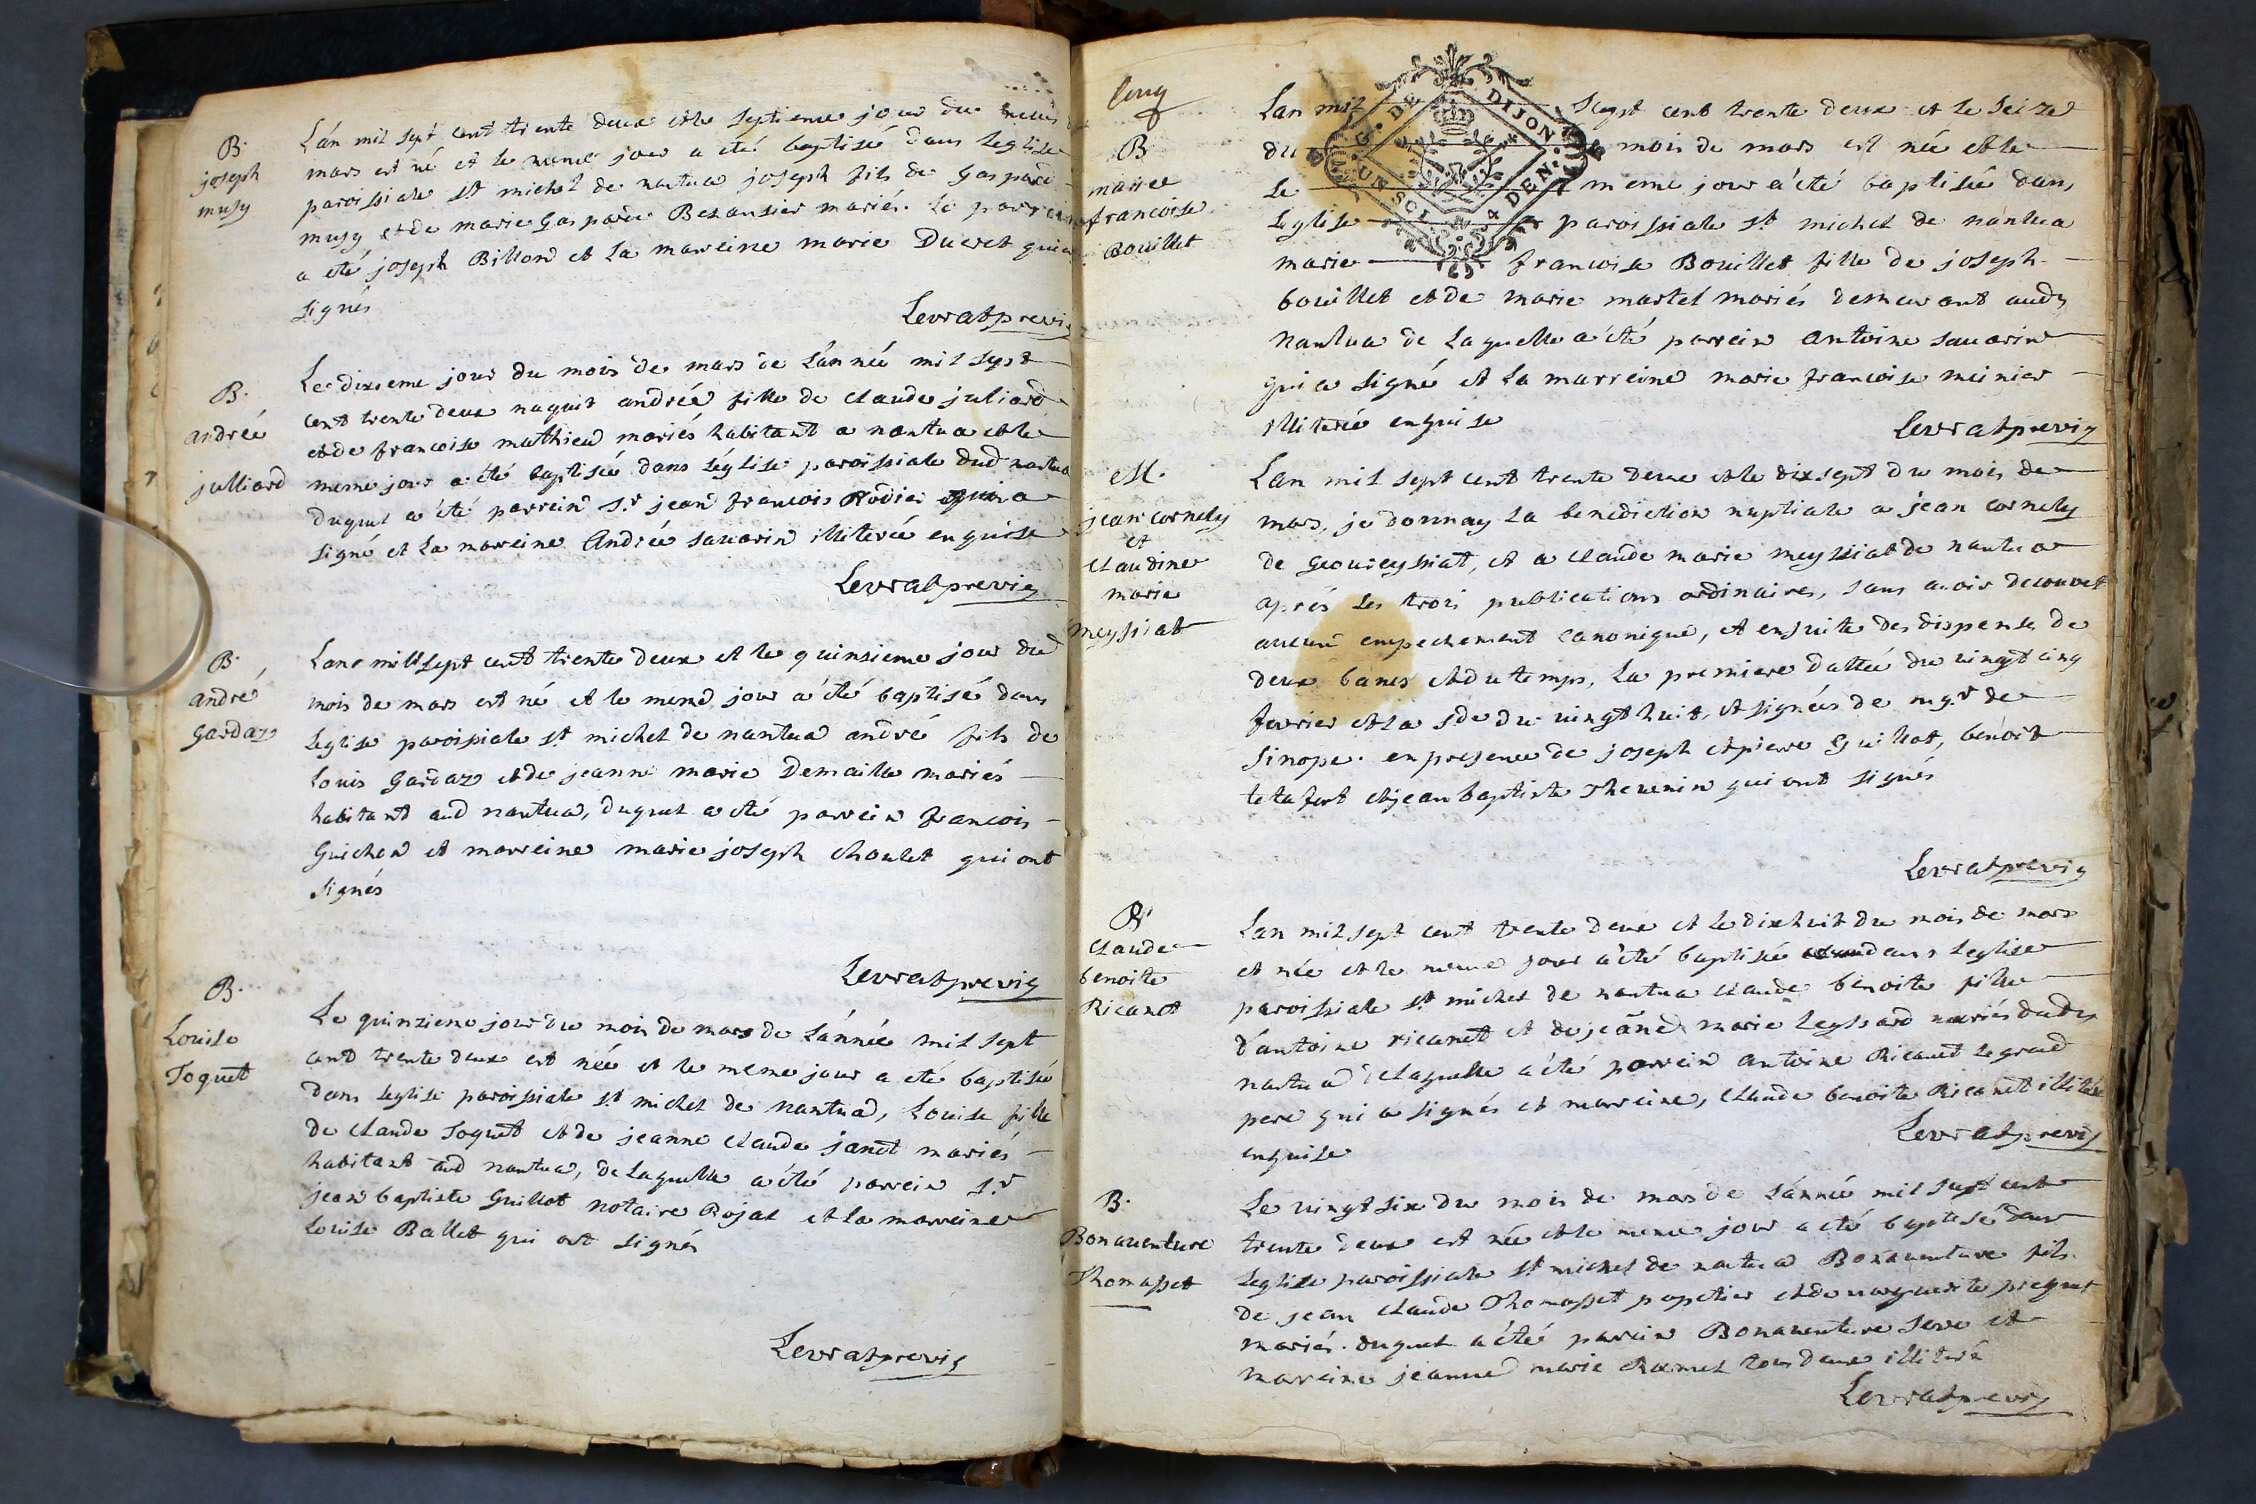 B.
joseph
musy
Lán mil sept cent trente deux et le septieme jour du mois
mars est né et le meme jour a été baptisé dans leglise
paroissiale st michel de nantua joseph fils de Gaspard
musy et de marie Gasparde Bezansier mariés. le parrain
a été joseph Billond et la marreine marie Ducret qui
signés
Levrat previg
B.
andrée
julliard
Le dixieme jour du mois de mars de lánnée mil sept
cent trente deux naquit andrée fille de claude juliard
et de francoise mathieu mariés habitant a nantua et le
meme jour a été baptisée dans léglise paroissiale dud nantua
duquel a été parrein sr jean francois Rodier qui a
signé et la marreine Andrée savarin illiterée enquise
Levrat previg
B.
andré
Gardaz
Lane mill sept cent trente deux et le quinsieme jour du
mois de mars est né et le meme jour a été baptisé dans
leglise paroissiale st michel de nantua andré fils de
louis Gardaz et de jeanne marie Demaille mariés
habitant aud nantua, duquel a été parrein francois
Guichon et marreine marie joseph choulet qui ont
signés
Levrat previg
B.
Louise
Joquet
Le quinzieme jour du mois de mars de lánnée mil sept
cent trente deux est née et le meme jour a été baptisée
dans leglise paroissiale st michel de nantua, Louise fille
de claude Joquet et de jeanne claude janet mariés
habitant aud nantua, de laquelle a été parrein sr
jean baptiste Guillot notaire Rojal et la marreine
louise Ballet qui ont signés
Levrat previg
Cinq
B
marie
francoise
Bouillet
Lan mil sept cent trente deux et le seize
du mois de mars est née et le
le meme jour a été baptisée dans
leglise paroissiale st michel de nantua
marie francoise Bouillet fille de joseph
bouillet et de marie martel mariés demeurant aud
nantua de laquelle a été parrein antoine savarin
qui a signé et la marreine marie francoise meinier
illiterée enquise
Levrat previg
G. DE DIJON
UN SOL. 4 DEN.
M.
jean cornely
et
claudine
marie
meyssiat
Lan mil sept cent trente deux et le dix sept du mois de
mars, je donnay la benediction nuptiale a jean cornely
de Geoureyssiat, et a claude marie meyssiat de nantua
aprés les trois publications ordinaires, sans avoir decouvert
aucun empechement canonique, et ensuite des dispenses de
deux bancs et du temps, la premiere dattée du vingt cinq
fevrier et la sde du vingt huit, et signées de mgr de
sinope. en presence de joseph et pierre Guillot, benoit
tetafort et jean baptiste Thevenin qui ont signés
Levrat previg
B
claude
benoite
Ricanet
Lan mil sept cent trente deux et le dixhuit du mois de mars
et née et le meme jour a été baptisée dans leglise
paroissiale st michel de nantua claude benoite fille
d'antoine ricanet et de jeane marie leyssard mariés dud
nantua de laquelle a été parrein antoine Ricanet le grand
pere qui a signés et marreine, claude benoite Ricanet illiterée
enquise
Levrat previg
B.
Bonaventure
Thomasset
Le vingt six du mois de mars de lánnée mil sept cent
trente deux est née et le meme jour a été baptisé dans
leglise paroissiale st michel de nantua Bonaventure fils
de jean claude Thomasset papetier et de marguerite
mariés. duquel a été parrein Bonaventure Seve et
marreine jeanne marie Ramel tous deux illiteré
Levrat previg